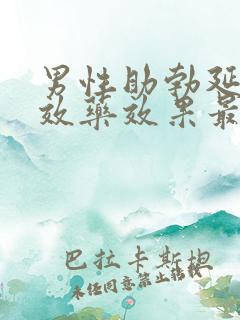 男性助勃延
效藥效果最
巴拉卡斯搜
未经同意禁止转载